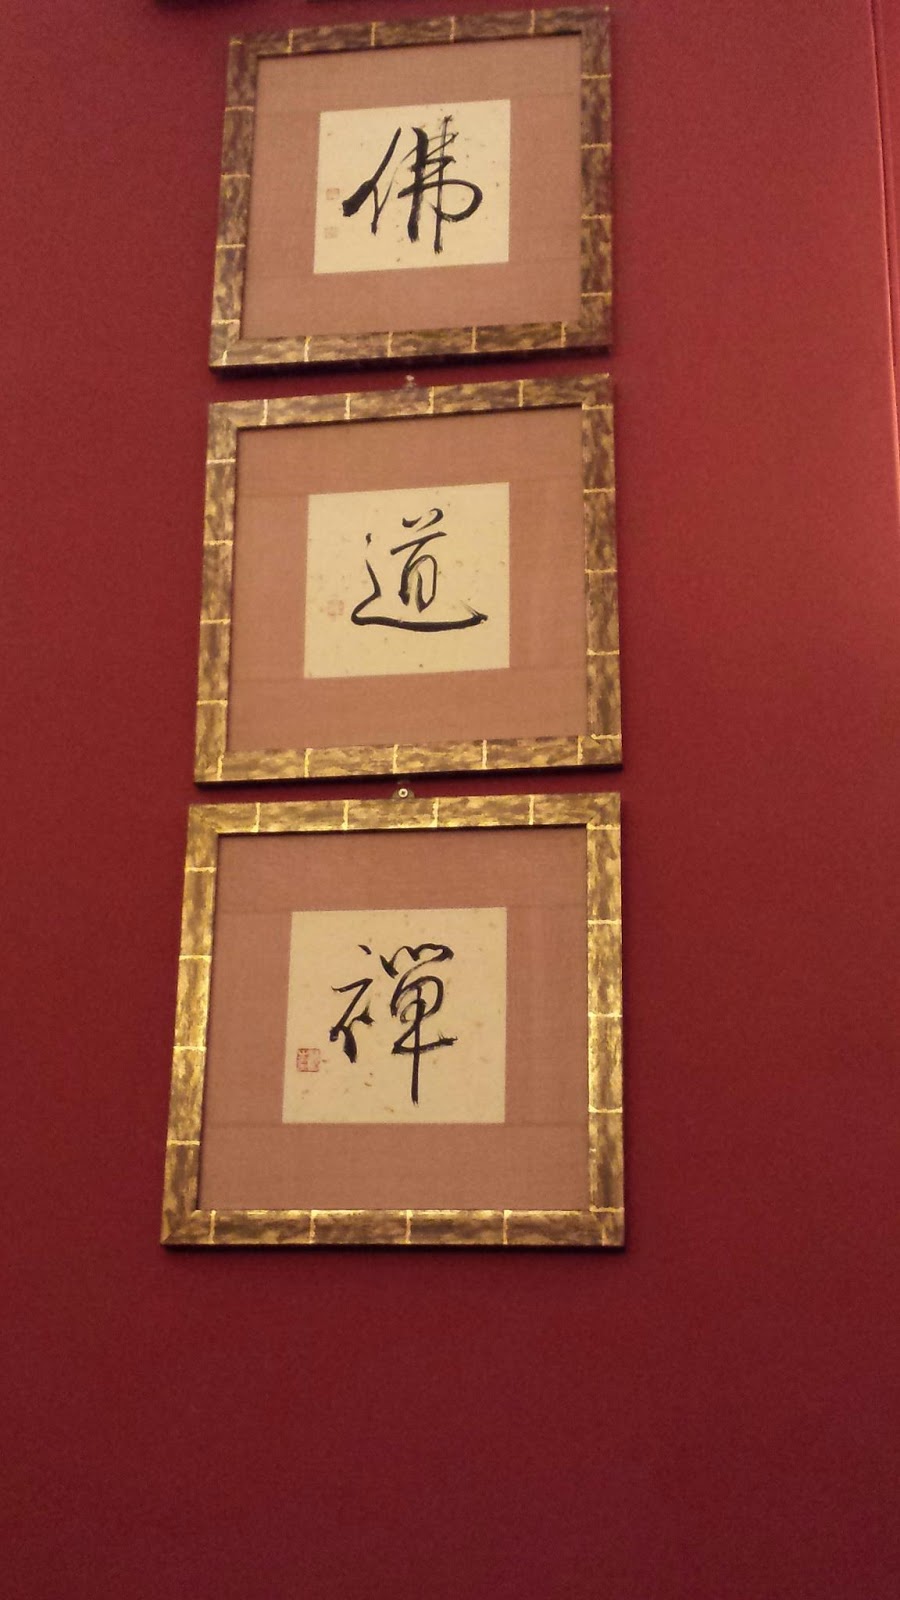 佛
道
禪